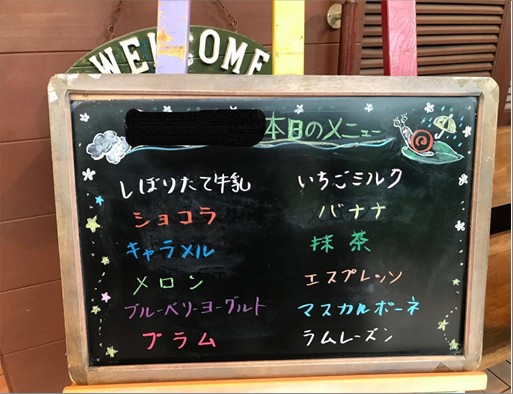 WELCOME
本日のメニュー
しぼりたて牛乳
ショコラ
キャラメル
メロン
ブルーベリーヨーグルト
プラム
いちごミルク
バナナ
抹茶
エスプレッソ
マスカルポーネ
ラムレーズン